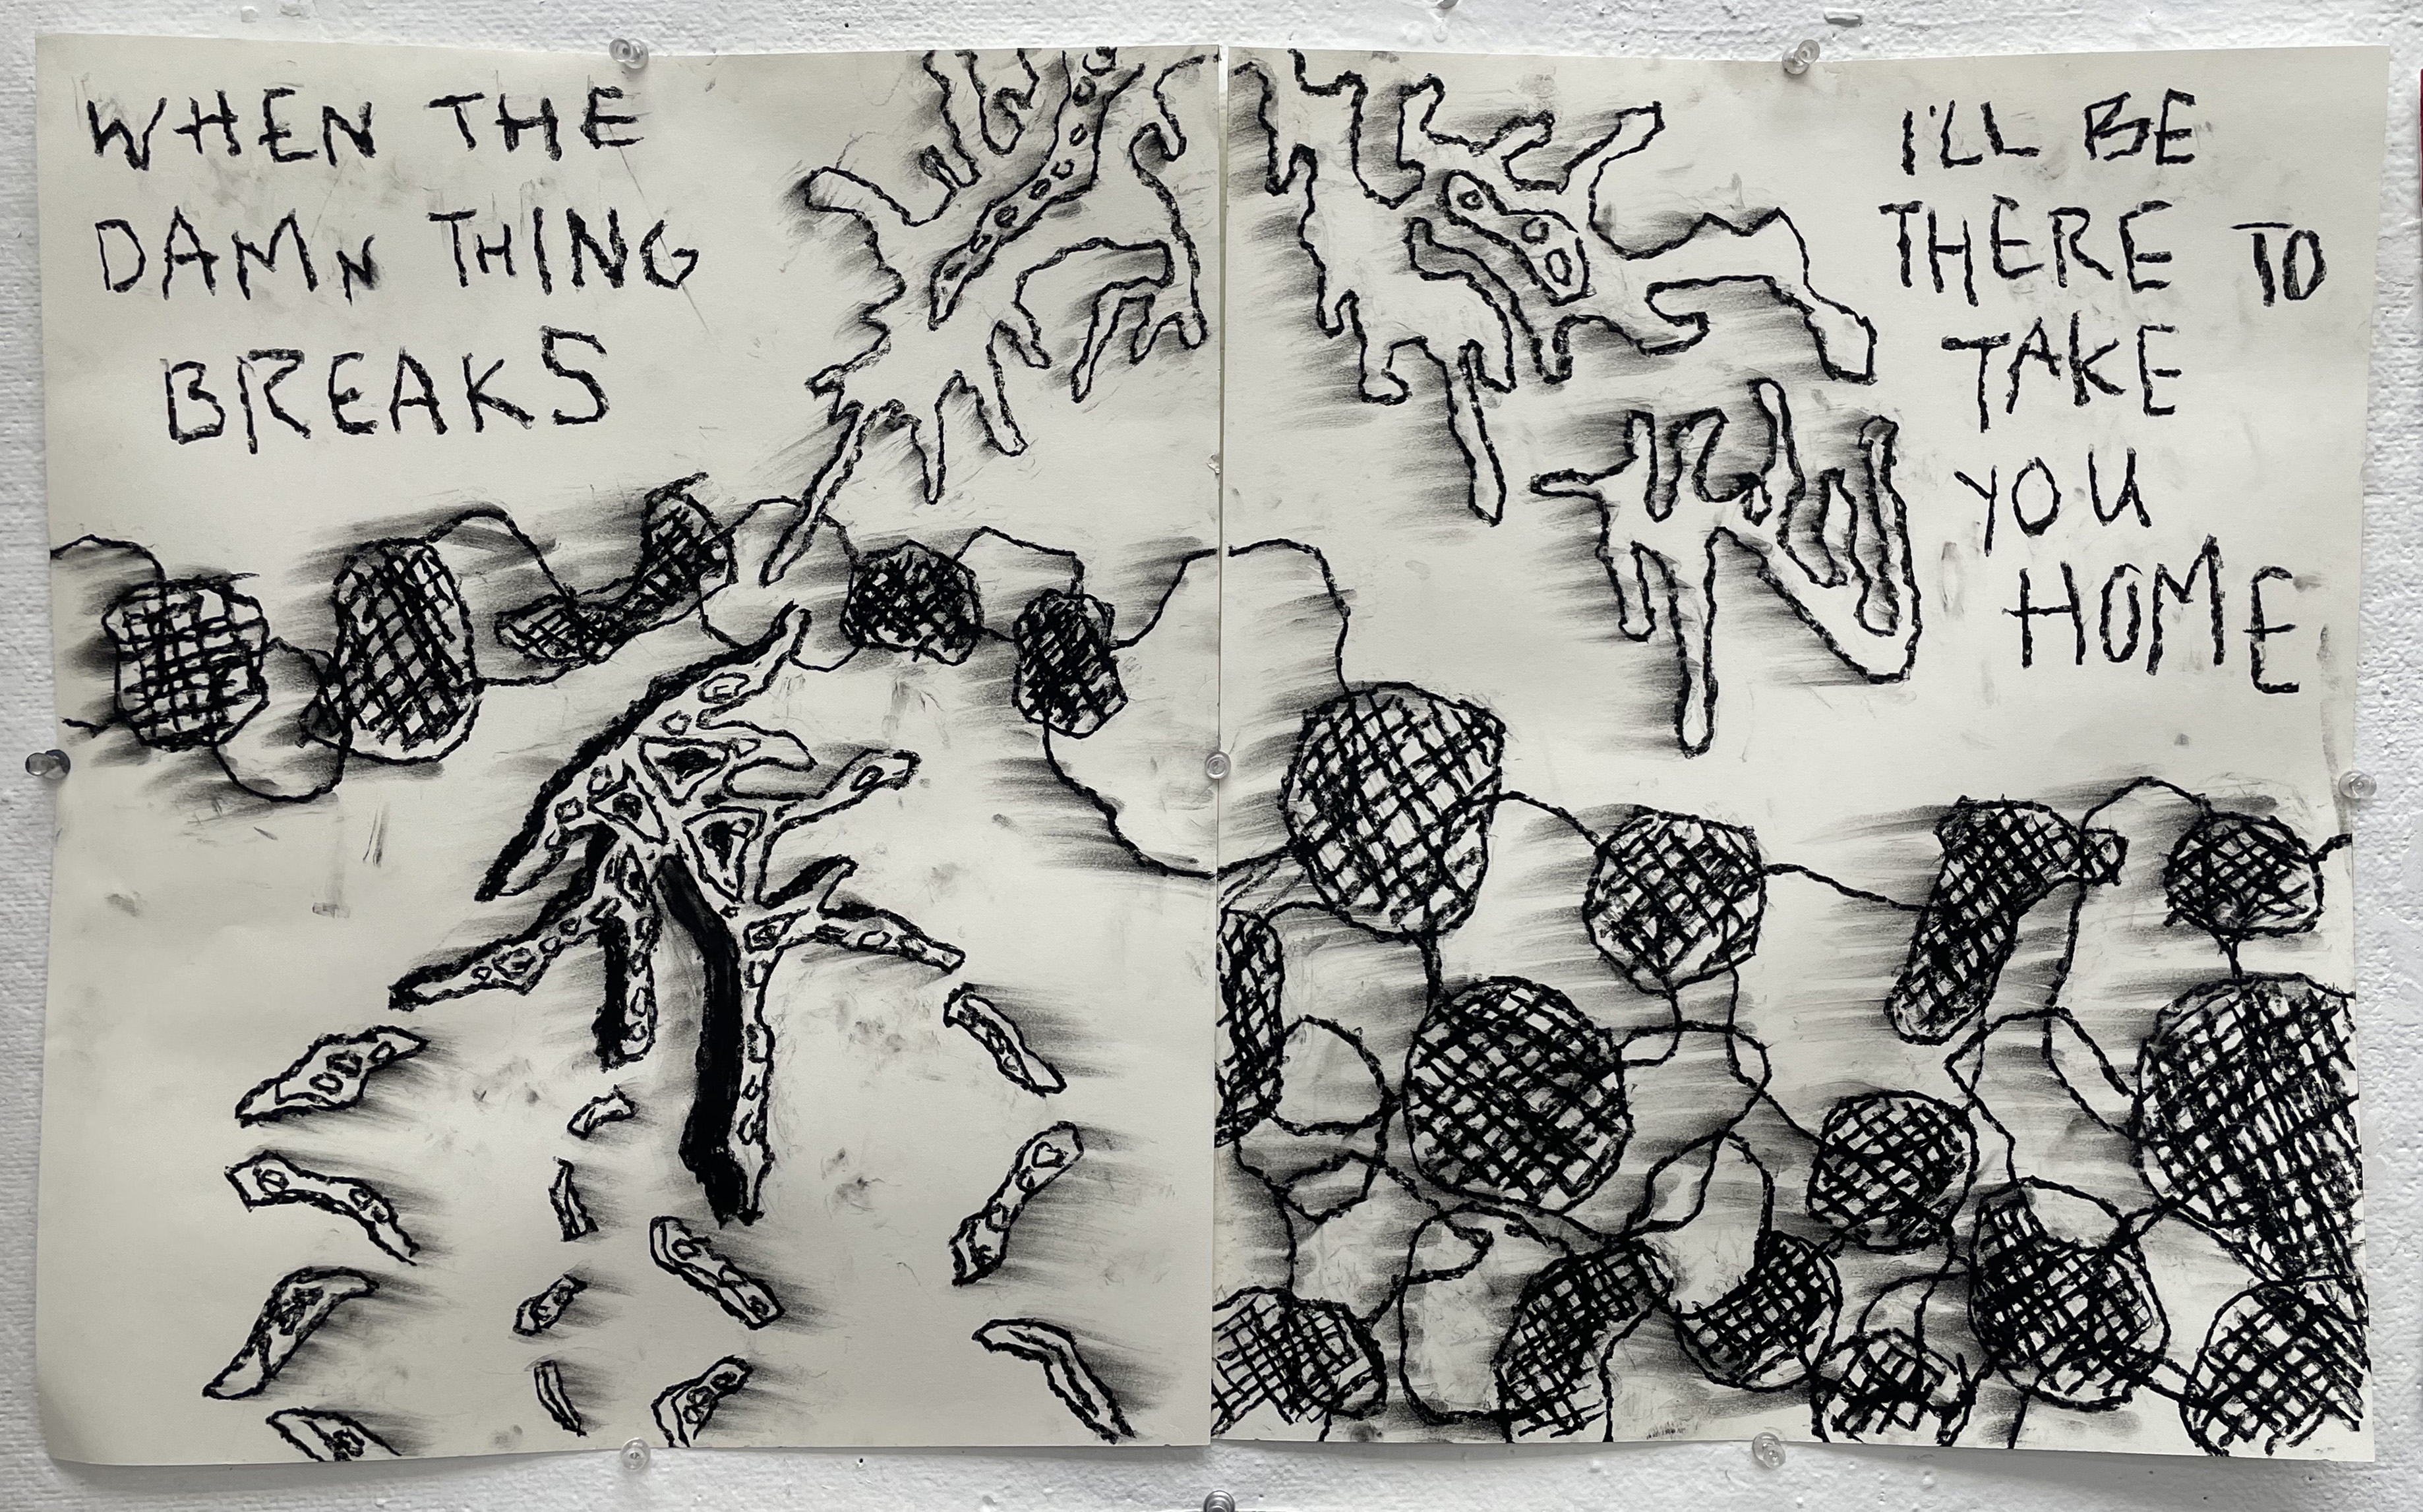 WHEN THE
DAMN THING
BREAKS
I'LL BE
THERE TO
TAKE
YOU
HOME